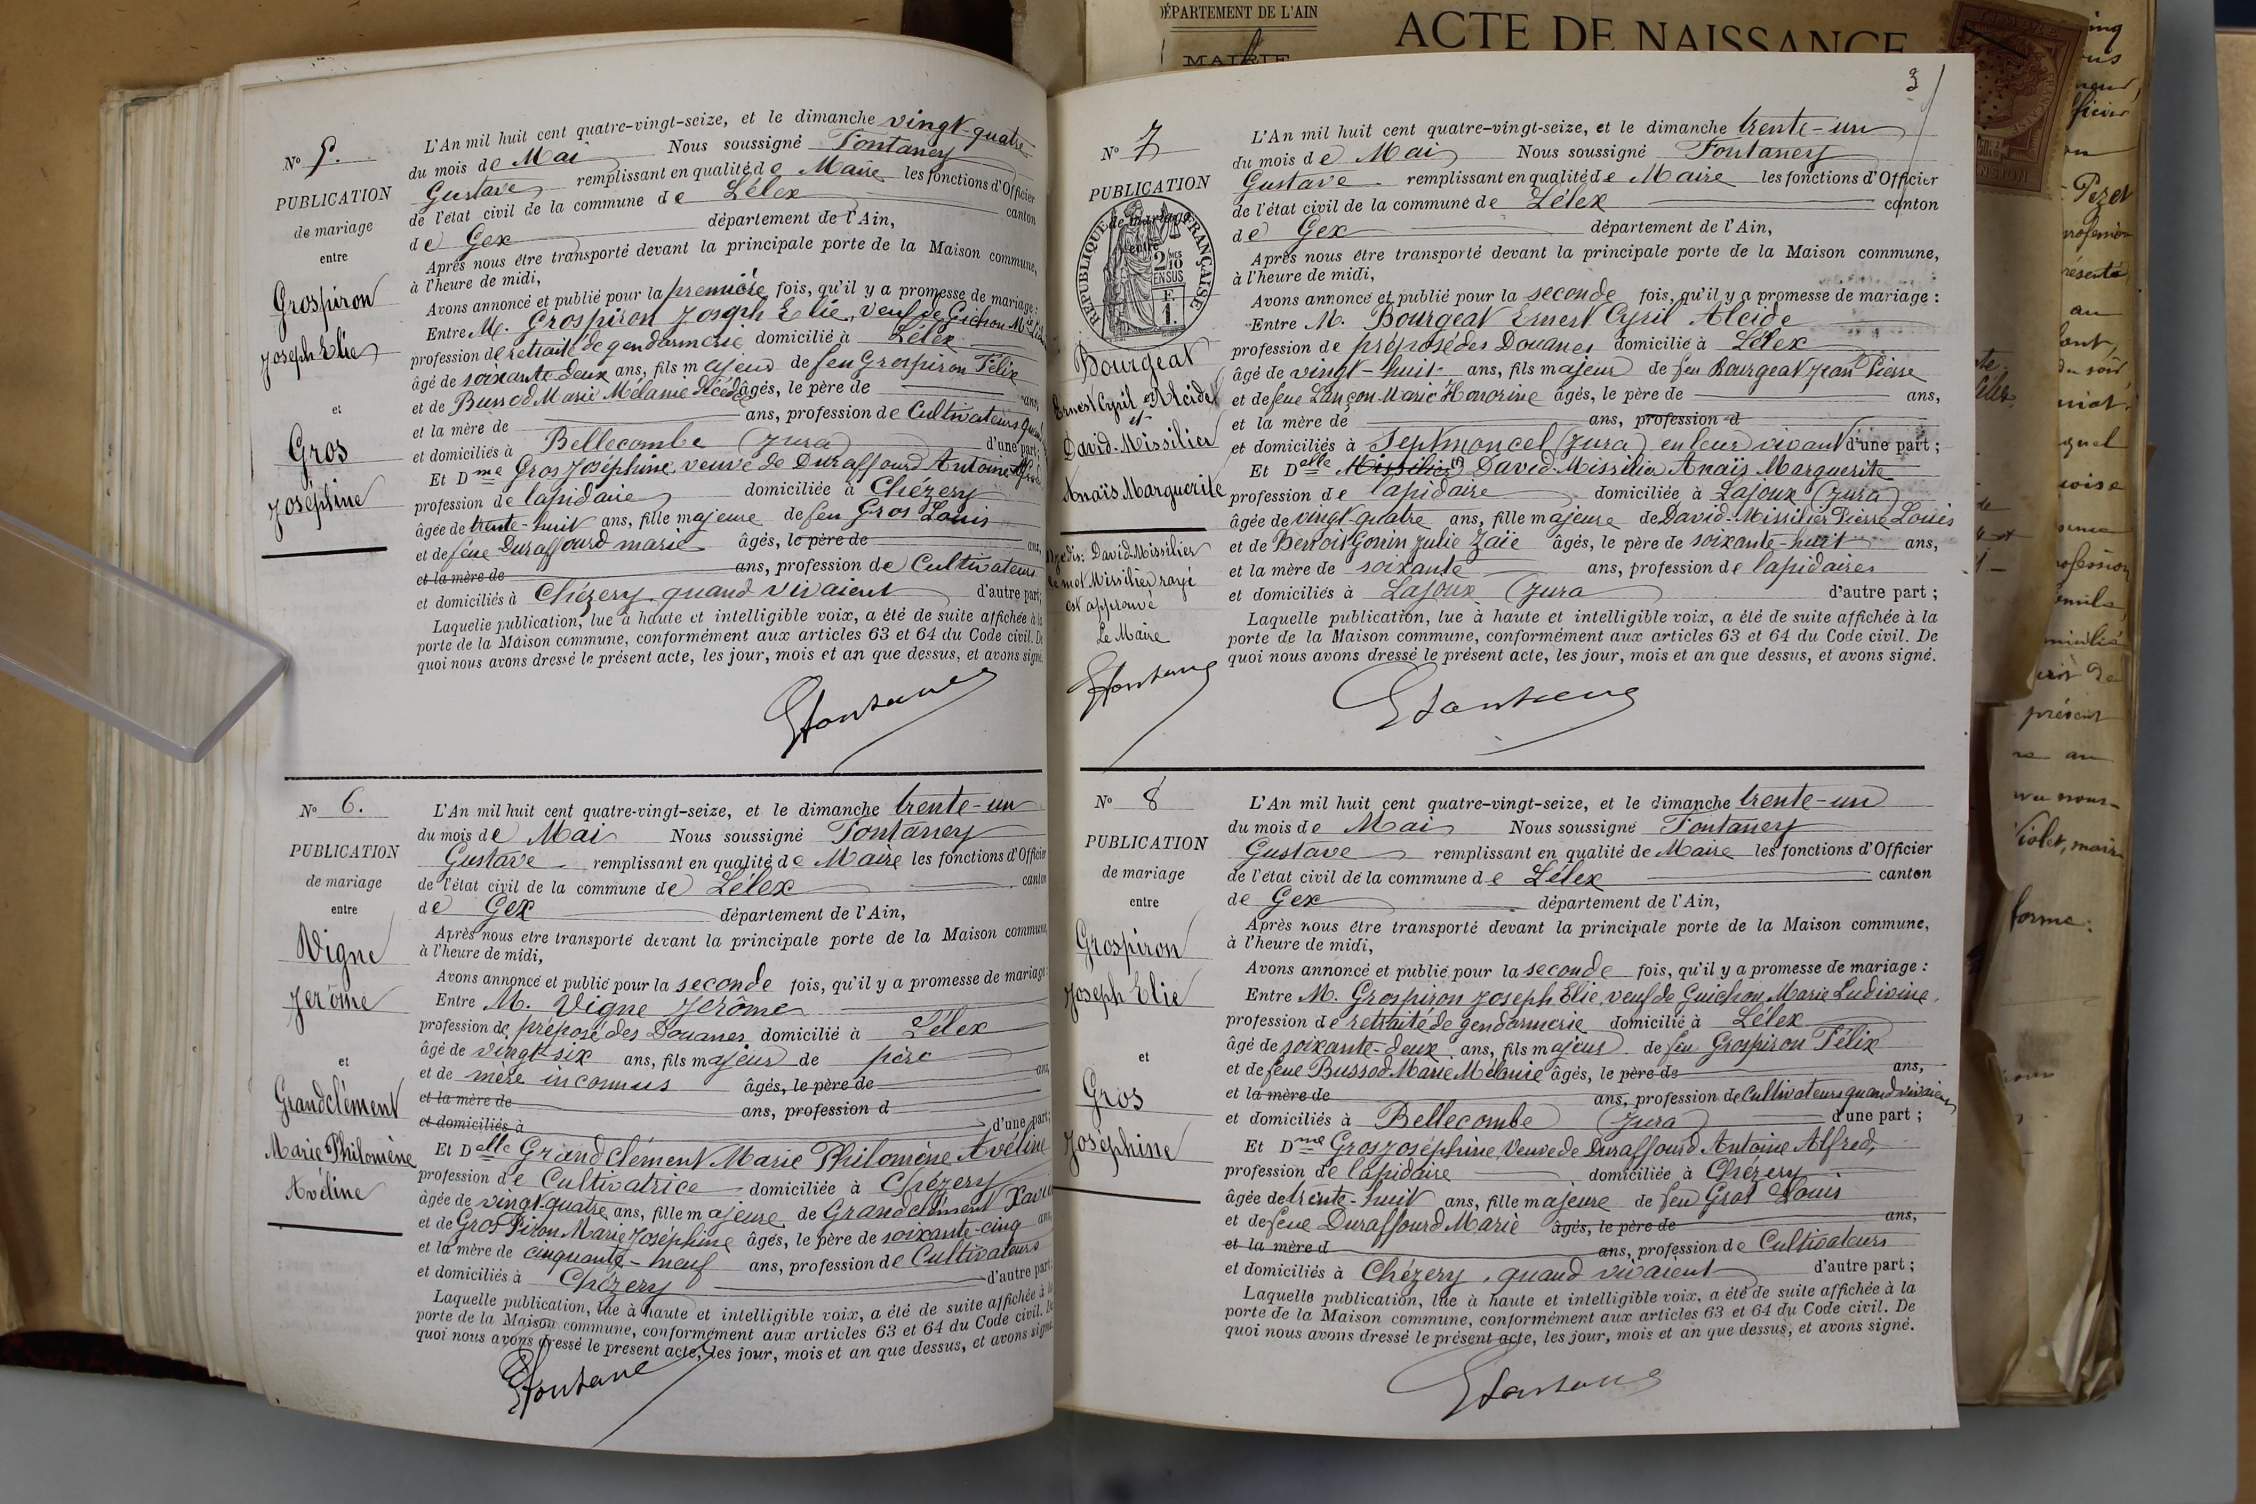 N° 5.
PUBLICATION
de mariage
entre
Grospiron
Joseph Elie
et
Gros
Joséphine
L'An mil huit cent quatre-vingt-seize, et le dimanche vingt-quatre
du mois de Mai Nous soussigné Fontaney
Gustave remplissant en qualité de Maire les fonctions d'Officier
de l'état civil de la commune de Lélex canton
de Gex département de l'Ain,
Après nous être transporté devant la principale porte de la Maison commune,
à l'heure de midi,
Avons annoncé et publié pour la première fois, qu'il y a promesse de mariage :
Entre M. Grospiron Joseph Elie, veuf de Guichon
profession de retraité de gendarmerie domicilié à Lélex
âgé de soixante-deux ans, fils majeur de feu Grospiron Félix
et de Bussod Marie Mélanie décédée âgés, le père de ans,
et la mère de ans, profession de Cultivateurs quand
et domiciliés à Bellecombe (Jura) d'une part ;
Et Dme Gros Joséphine, veuve de Duraffourd Antoine Alfred
profession de lapidaire domiciliée à Chézery
âgée de trente-huit ans, fille majeure de feu Gros Louis
et de feue Duraffourd Marie âgés, le père de ans,
et la mère de ans, profession de Cultivateurs
et domiciliés à Chézery, quand vivaient d'autre part ;
Laquelle publication, lue à haute et intelligible voix, a été de suite affichée à la
porte de la Maison commune, conformément aux articles 63 et 64 du Code civil. De
quoi nous avons dressé le présent acte, les jour, mois et an que dessus, et avons signé.
GFontaney
N° 6.
PUBLICATION
de mariage
entre
Vigne
Jérôme
et
Grandclément
Marie Philomène
Avéline
L'An mil huit cent quatre-vingt-seize, et le dimanche trente-un
du mois de Mai Nous soussigné Fontaney
Gustave remplissant en qualité de Maire les fonctions d'Officier
de l'état civil de la commune de Lélex canton
de Gex département de l'Ain,
Après nous être transporté devant la principale porte de la Maison commune,
à l'heure de midi,
Avons annoncé et publié pour la seconde fois, qu'il y a promesse de mariage :
Entre M. Vigne Jérôme
profession de préposé des Douanes domicilié à Lélex
âgé de vingt-six ans, fils majeur de père
et de mère inconnus âgés, le père de ans,
et la mère de ans, profession d
et domiciliés à d'une part ;
Et Delle Grandclément Marie Philomène Avéline
profession de Cultivatrice domiciliée à Chézery
âgée de vingt-quatre ans, fille majeure de Grandclément Xavier
et de Gros Piron Marie Joséphine âgés, le père de soixante-cinq ans,
et la mère de cinquante-neuf ans, profession de Cultivateurs
et domiciliés à Chézery d'autre part
Laquelle publication, lue à haute et intelligible voix, a été de suite affichée à la
porte de la Maison commune, conformément aux articles 63 et 64 du Code civil. De
quoi nous avons dressé le présent acte, les jour, mois et an que dessus, et avons signé.
GFontaney
DÉPARTEMENT DE L'AIN
MAIRIE
ACTE DE NAISSANCE
3
N° 7
PUBLICATION
de mariage
entre
RÉPUBLIQUE FRANÇAISE
2/10 EN SUS
F. 1.
Bourgeat
Ernest Cyril Alcide
et
David-Missilier
Anaïs Marguerite
David Missilier
le mot Missilier rayé
est approuvé
Le Maire
GFontaney
L'An mil huit cent quatre-vingt-seize, et le dimanche trente-un
du mois de Mai Nous soussigné Fontaney
Gustave remplissant en qualité de Maire les fonctions d'Officier
de l'état civil de la commune de Lélex canton
de Gex département de l'Ain,
Après nous être transporté devant la principale porte de la Maison commune,
à l'heure de midi,
Avons annoncé et publié pour la seconde fois, qu'il y a promesse de mariage :
Entre M. Bourgeat Ernest Cyril Alcide
profession de préposé des Douanes domicilié à Lélex
âgé de vingt-huit ans, fils majeur de feu Bourgeat Jean Pierre
et de feue Lançon Marie Honorine âgés, le père de ans,
et la mère de ans, profession d
et domiciliés à Septmoncel (Jura) en leur vivant d'une part ;
Et Delle Missilier (1) David-Missilier Anaïs Marguerite
profession de lapidaire domiciliée à Lajoux (Jura)
âgée de vingt-quatre ans, fille majeure de David-Missilier Pierre Louis
et de Benoit Gonin Julie Zaïe âgés, le père de soixante-huit ans,
et la mère de soixante ans, profession de lapidaires
et domiciliés à Lajoux (Jura d'autre part ;
Laquelle publication, lue à haute et intelligible voix, a été de suite affichée à la
porte de la Maison commune, conformément aux articles 63 et 64 du Code civil. De
quoi nous avons dressé le présent acte, les jour, mois et an que dessus, et avons signé.
GFontaney
N° 8
PUBLICATION
de mariage
entre
Grospiron
Joseph Elie
et
Gros
Joséphine
L'An mil huit cent quatre-vingt-seize, et le dimanche trente-un
du mois de Mai Nous soussigné Fontaney
Gustave remplissant en qualité de Maire les fonctions d'Officier
de l'état civil de la commune de Lélex canton
de Gex département de l'Ain,
Après nous être transporté devant la principale porte de la Maison commune,
à l'heure de midi,
Avons annoncé et publié pour la seconde fois, qu'il y a promesse de mariage :
Entre M. Grospiron Joseph Elie, veuf de Guichon Marie Ludivine,
profession de retraité de gendarmerie domicilié à Lélex
âgé de soixante-deux ans, fils majeur de feu Grospiron Félix
et de feue Bussod Marie Mélanie âgés, le père de ans,
et la mère de ans, profession de Cultivateurs quand vivaient
et domiciliés à Bellecombe (Jura) d'une part ;
Et Dme Gros Joséphine, Veuve de Duraffourd Antoine Alfred,
profession de lapidaire domiciliée à Chézery
âgée de trente-huit ans, fille majeure de feu Gros Louis
et de feue Duraffourd Marie âgés, le père de ans,
et la mère d ans, profession de Cultivateurs
et domiciliés à Chézery, quand vivaient d'autre part ;
Laquelle publication, lue à haute et intelligible voix, a été de suite affichée à la
porte de la Maison commune, conformément aux articles 63 et 64 du Code civil. De
quoi nous avons dressé le présent acte, les jour, mois et an que dessus, et avons signé.
GFontaney
Pezet
au
quel
présent
Violet, maire
forme.